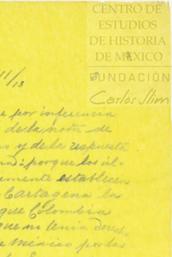 CENTRO DE
ESTUDIOS
DE HISTORIA
DE MÉXICO
FUNDACIÓN
Carlos Slim
11/13
e por inferencia
de la nota de
y de la respuesta
porque los
mente establecen
Cartagena la
que Colombia
que no tenía
México por las